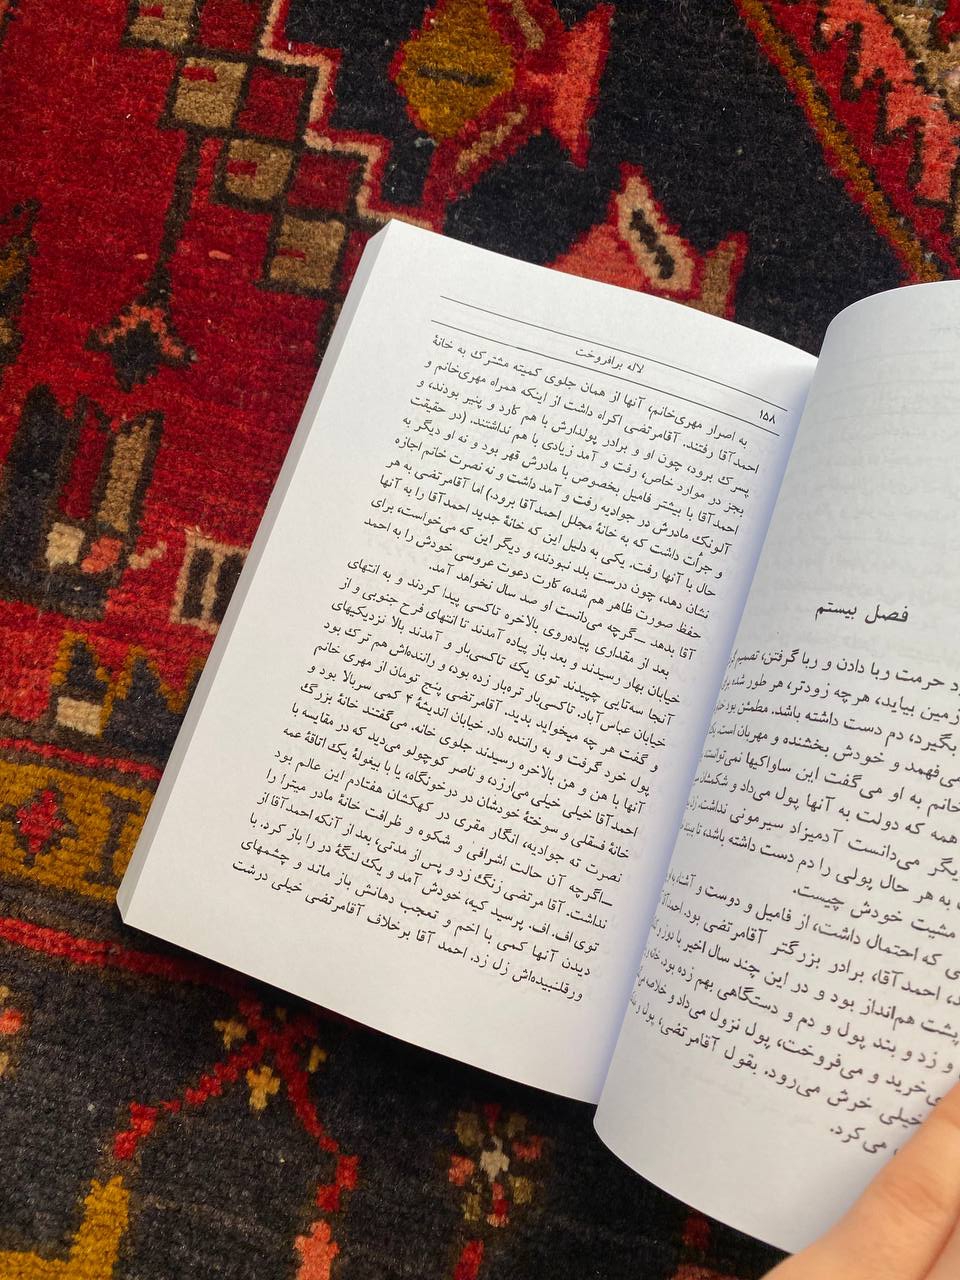 لاله برافروخت
۱۵۸
به اصرار مهری‌خانم، آنها از همان جلوی کمیته مشترک به خانهٔ
احمدآقا رفتند. آقامرتضی اکراه داشت از اینکه همراه مهری‌خانم و
پسرک برود، چون او و برادر پولدارش با هم کارد و پنیر بودند، و
بجز در موارد خاص، رفت و آمد زیادی با هم نداشتند. (در حقیقت
احمدآقا با بیشتر فامیل بخصوص با مادرش قهر بود و نه او دیگر به
آلونک مادرش در جوادیه رفت و آمد داشت و نه نصرت خانم اجازه
و جرأت داشت که به خانهٔ مجلل احمدآقا برود) اما آقامرتضی به هر
حال با آنها رفت. یکی به دلیل این که خانهٔ جدید احمدآقا را به آنها
نشان دهد، چون درست بلد نبودند، و دیگر این که می‌خواست، برای
حفظ صورت ظاهر هم شده، کارت دعوت عروسی خودش را به احمد
آقا بدهد ــ گرچه می‌دانست او صد سال نخواهد آمد.
بعد از مقداری پیاده‌روی بالاخره تاکسی پیدا کردند و به انتهای
خیابان بهار رسیدند و بعد باز پیاده آمدند تا انتهای فرح جنوبی و از
آنجا سه‌تایی چپیدند توی یک تاکسی‌بار و آمدند بالا نزدیکیهای
خیابان عباس‌آباد. تاکسی‌بار تره‌بار زده بود، و راننده‌اش هم ترک بود
و گفت هر چه میخواید بدید. آقامرتضی پنج تومان از مهری خانم
پول خرد گرفت و به راننده داد. خیابان اندیشهٔ ۴ کمی سربالا بود و
آنها با هن و هن بالاخره رسیدند جلوی خانه. می‌گفتند خانهٔ بزرگ
احمدآقا خیلی خیلی می‌ارزد، و ناصر کوچولو می‌دید که در مقایسه با
خانهٔ فسقلی و سوختهٔ خودشان در درخونگاه، یا با بیغولهٔ یک اتاقهٔ عمه
نصرت ته جوادیه، انگار مقری در کهکشان هفتادم این عالم بود
ــ اگرچه آن حالت اشرافی و شکوه و ظرافت خانهٔ مادر میترا را
نداشت. آقا مرتضی زنگ زد و پس از مدتی، بعد از آنکه احمدآقا از
توی اف. اف. پرسید کیه، خودش آمد و یک لنگهٔ در را باز کرد. با
دیدن آنها کمی با اخم و تعجب دهانش باز ماند و چشمهای
ورقلنبیده‌اش زل زد. احمد آقا برخلاف آقامرتضی خیلی درشت
فصل بیستم
حرمت ربا دادن و ربا گرفتن، تصمیم
زمین بیاید، هرچه زودتر، هر طور شده
بگیرد، دم دست داشته باشد. مطمئن بود
می‌فهمد و خودش بخشنده و مهربان است.
خانم به او می‌گفت این ساواکیها نمی‌توانستند
همه که دولت به آنها پول می‌داد و شکمشان
یگر می‌دانست آدمیزاد سیرمونی نداشت.
به هر حال پولی را دم دست داشته باشد، تا
مشیت خودش چیست.
ی که احتمال داشت، از فامیل و دوست و آشنا،
احمدآقا، برادر بزرگتر آقامرتضی بود.
پشت هم‌انداز بود و در این چند سال اخیر با دوز و
و زد و بند پول و دم و دستگاهی بهم زده بود.
خرید و می‌فروخت، پول نزول می‌داد و خلاصه
خیلی خرش می‌رود. بقول آقامرتضی، پول
می کرد.